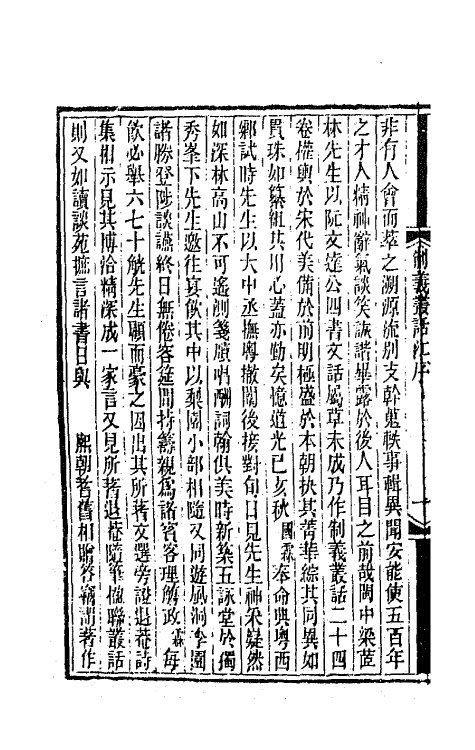 制義叢話江序
一
非有人會而萃之溯源流別支幹蒐軼事輯異聞安能使五百年
之才人精神辭氣談笑詼諧畢露於後人耳目之前哉閩中梁茝
林先生以阮文達公四書文話屬草未成乃作制義叢話二十四
卷權輿於宋代美備於前明極盛於本朝抉其菁華綜其同異如
貫珠如纂組其用心蓋亦勤矣憶道光己亥秋國霖奉命典粵西
鄉試時先生以大中丞撫粵撤闈後接對旬日見先生神采嶷然
如深林高山不可遙測箋牘唱酬詞翰俱美時新築五詠堂於獨
秀峯下先生邀往宴飲其中以梨園小部相隨又同遊風洞李園
諸勝登陟談讌終日無倦客筵間持籌親爲諸賓客理觴政霖每
飲必舉六七十觥先生顧而豪之因出其所著文選旁證退菴詩
集相示見其博洽精深成一家言又見所著退菴隨筆楹聯叢話
則又如讀談苑摭言諸書日與 熙朝耆舊相贈答竊謂著作